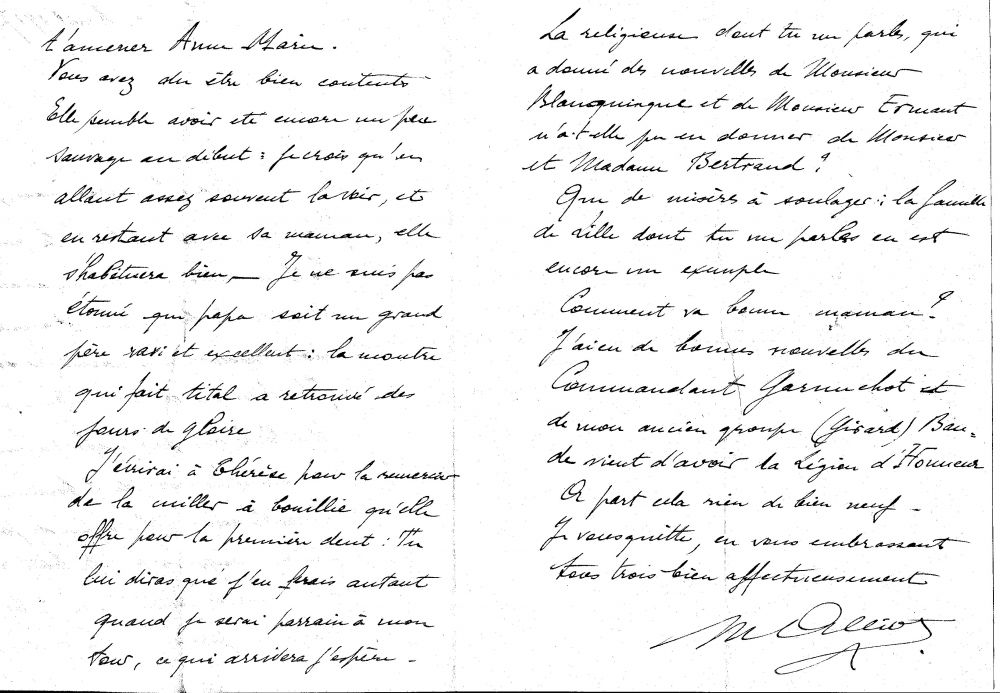 t'amener Anne Marie.
Vous avez du être bien contents
Elle semble avoir ete encore un peu
sauvage au début : je crois qu'en
allant assez souvent la voir, et
en restant avec sa maman, elle
s'habituera bien, — Je ne suis pas
étonné que papa soit un grand
père ravi et excellent : la montre
qui fait tital a retrouvé des
jours de gloire
J'écrirai à Thérèse pour la remercier
de la cuiller à bouillie qu'elle
offre pour la première dent : Tu
lui diras que j'en ferais autant
quand je serai parrain à mon
tour, ce qui arrivera j'espère -
La religieuse dont tu me parles, qui
a donné des nouvelles de Monsieur
et de Monsieur Ermant
n'a t'elle pu en donner de Monsieur
et Madame Bertrand ?
Que de misères à soulager : la famille
de Lille dont tu me parles en est
encore un exemple
Comment va bonne maman ?
J'ai eu de bonnes nouvelles du
Commandant Garnuchot et
de mon ancien groupe (Girard) Bau-
de vient d'avoir la Légion d'Honneur
A part cela rien de bien neuf -
Je vous quitte, en vous embrassant
tous trois bien affectueusement
M